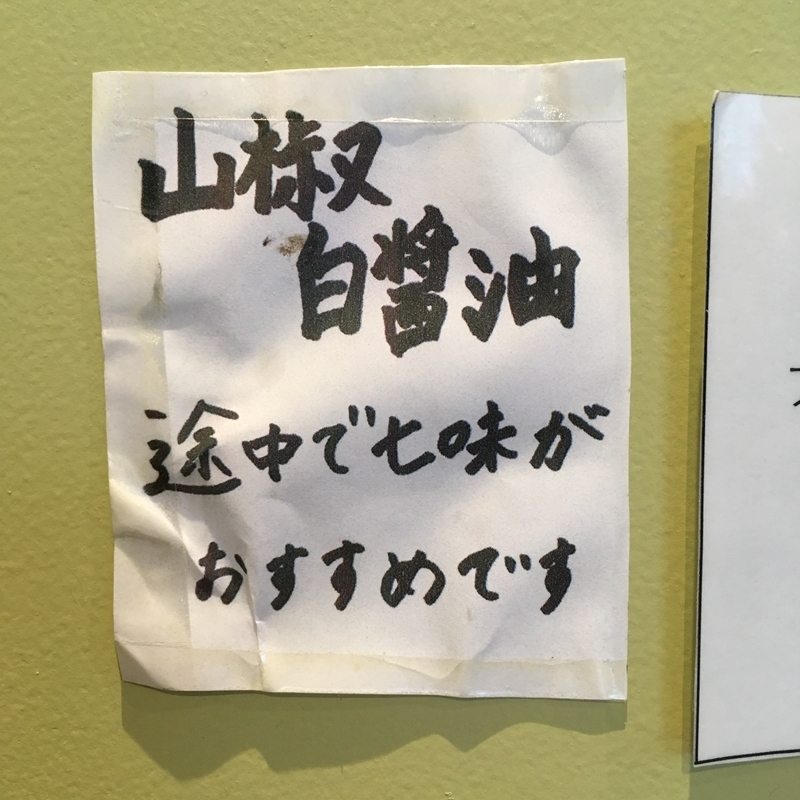 山椒
白醤油
途中で七味が
おすすめです